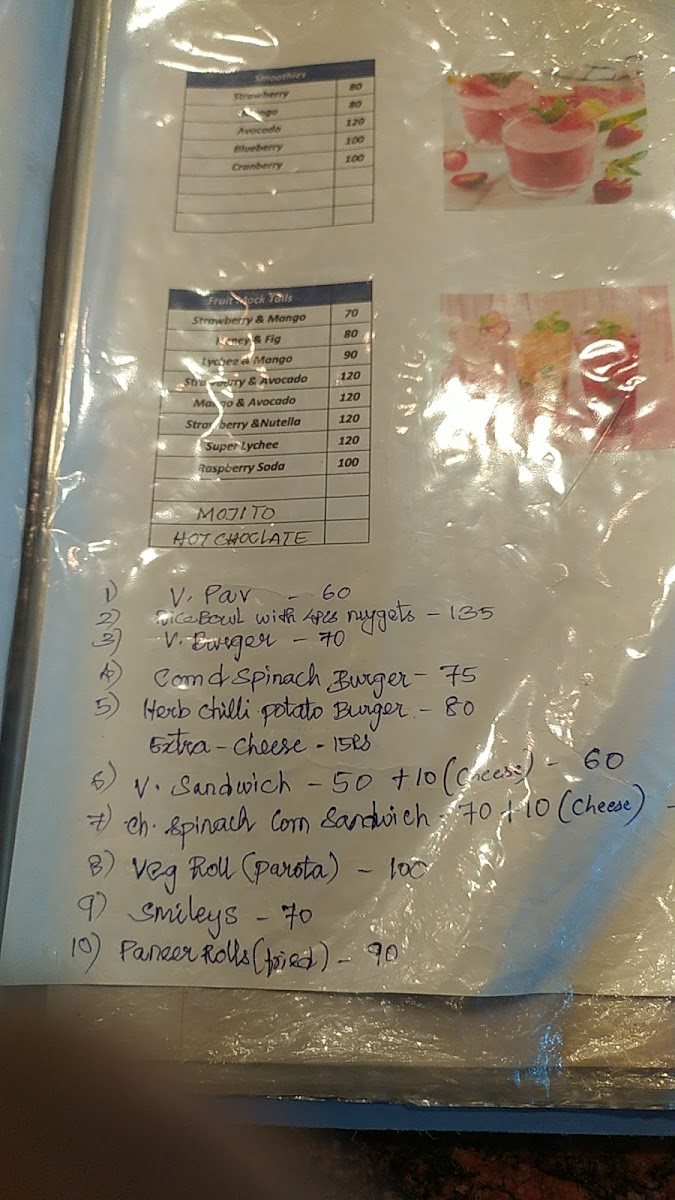 Smoothies
Strawberry 80
Mango 80
Avocado 120
Blueberry 100
Cranberry 100
Fruit Mock Tails
Strawberry & Mango 70
Honey & Fig 80
Lychee & Mango 90
Strawberry & Avocado 120
Mango & Avocado 120
Strawberry &Nutella 120
Super Lychee 120
Raspberry Soda 100
MOJITO
HOT CHOCLATE
1) V. Pav - 60
2) Rice Bowl with 4pcs nuggets - 135
3) V. Burger - 70
4) Corn & Spinach Burger - 75
5) Herb chilli potato Burger - 80
Extra - cheese - 15Rs
6) V. Sandwich - 50 + 10 (Cheese) - 60
7) Ch. Spinach Corn Sandwich - 70 + 10 (Cheese) -
8) Veg Roll (parota) - 100
9) Smileys - 70
10) Paneer Rolls (fried) - 90